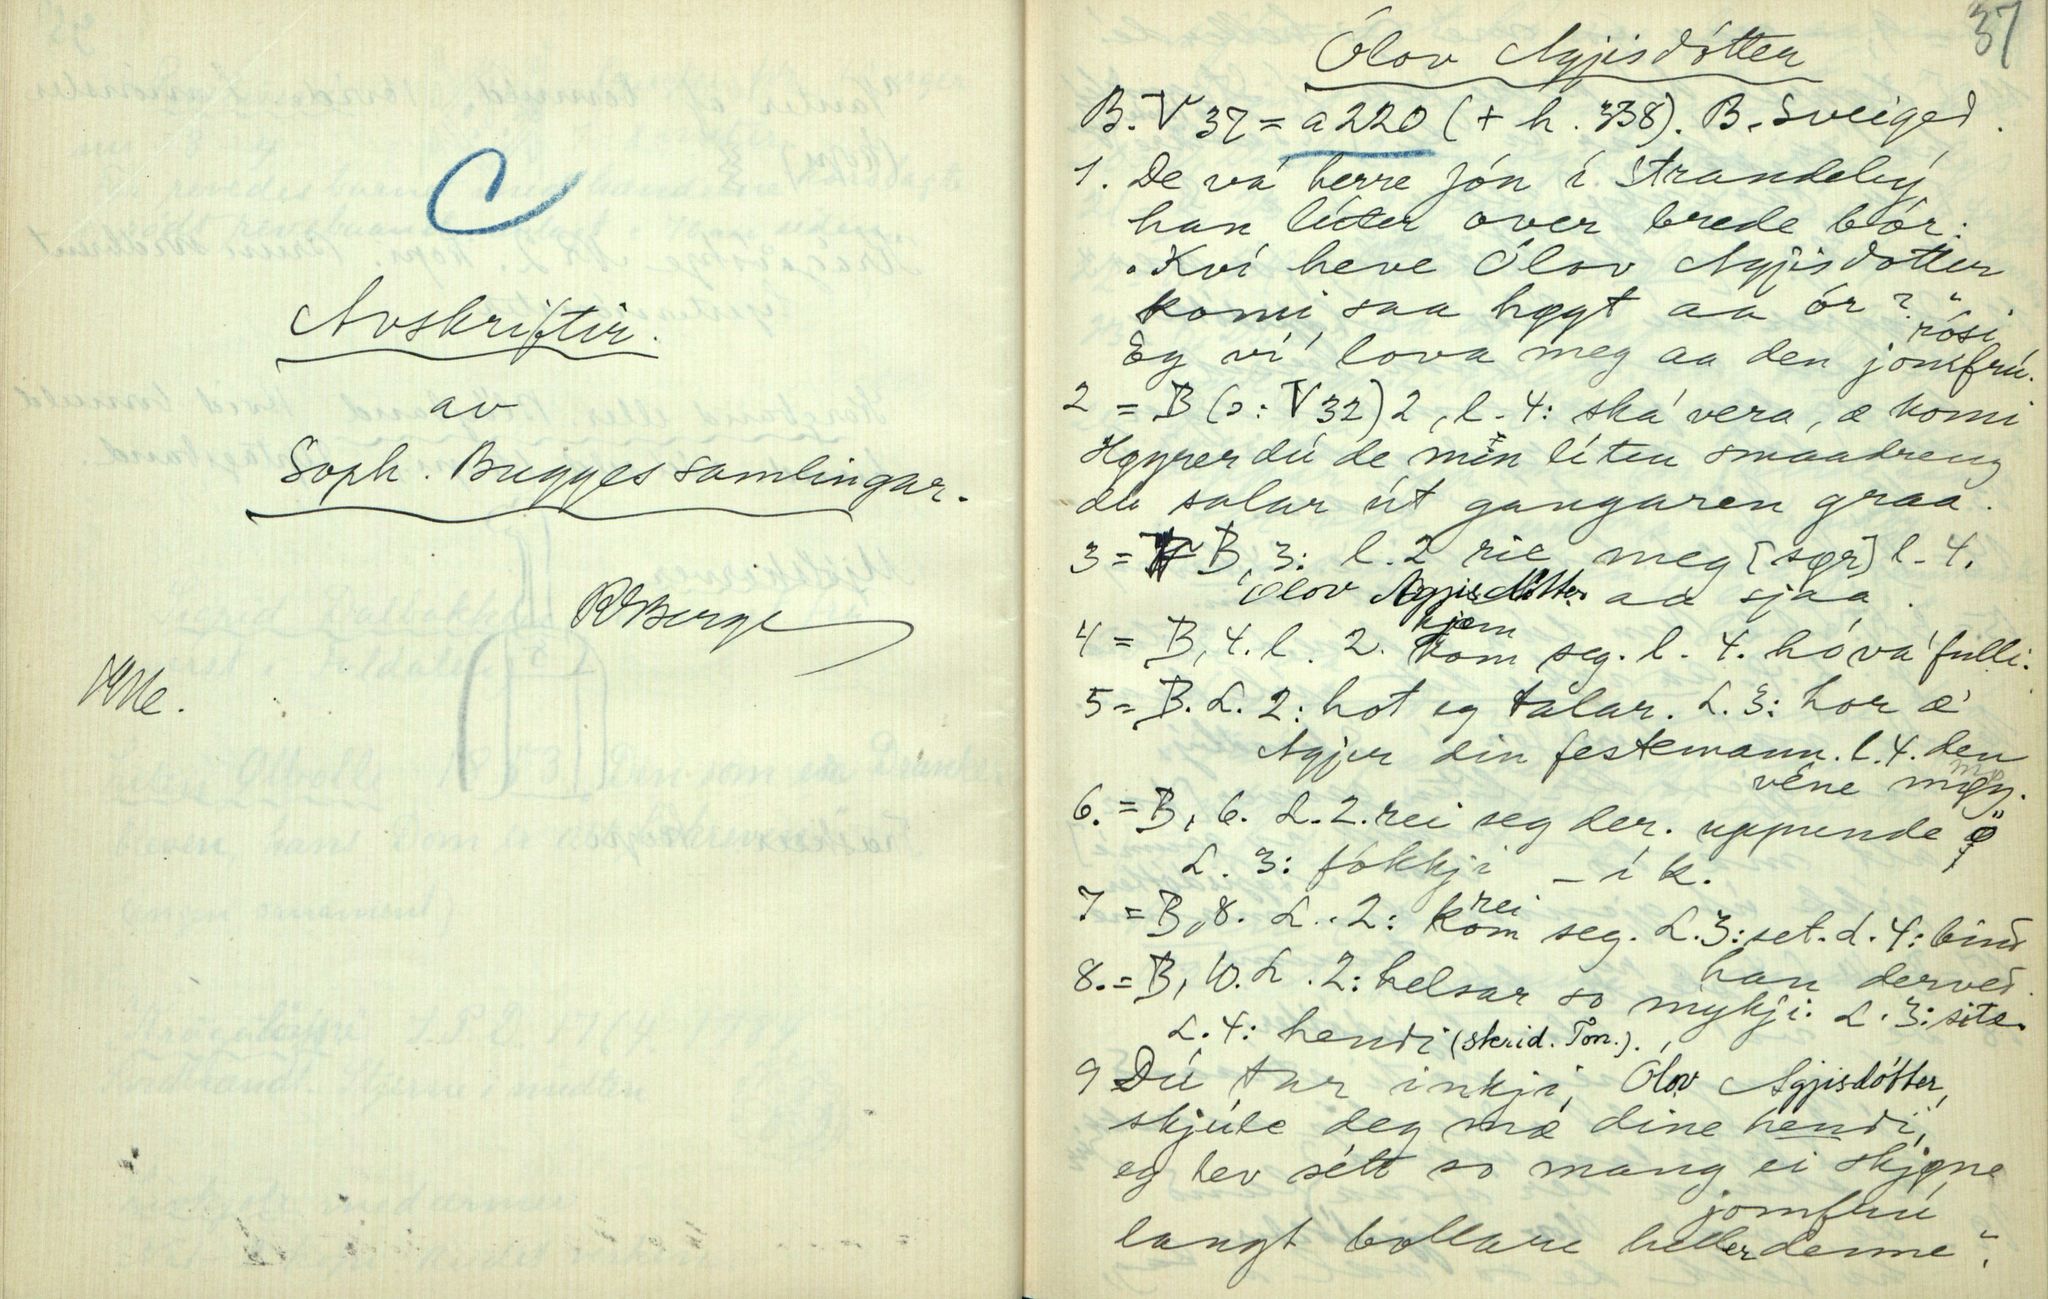 C
Avskriftir.
av
Soph. Bugges samlingar.
RBerge
37
Ólov Agjisdótter
B. V 37 = a 220 (+ h. 338). B. Sveigd.
1. De vá herre Jón í Strandebý
han líter over brede bór:
"Kví heve Ólov Agjisdotter
komi saa høgt aa ór?"
Eg ví lova meg aa den jomfrú.
rósi
2 = B (ɔ: V 32) 2, l. 4: ská vera, æ komi
Høyrer dú de min líten smaadreng
du salar út gangaren graa.
3 = B, 3: l. 2 rie meg [sør] l. 4.
Ólov Agjisdótter aa sjaa.
4 = B, 4. l. 2. kom seg. l. 4. hó vá fulli.
kjem
5 = B. L. 2: hot eg talar. L. 3: hor æ
Agjer din festemann. l. 4. den
véne møy.
6. = B, 6. L. 2. rei seg der. uppunde ø
L. 3: fókkji – í k.
7 = B, 8. L. 2: kom seg. L. 3: set. L. 4: bind
rei
han derved.
8. = B, 10. L. 2: helsar so mykji: L. 3: site.
L. 4: hendi (skrid. Ton.).
9 Dú tar inkji, Ólov Agjisdótter,
skjúle deg mæ dine hendi,
eg hev sétt so mang ei skjøne
jomfrú
langt bollare heller denne".